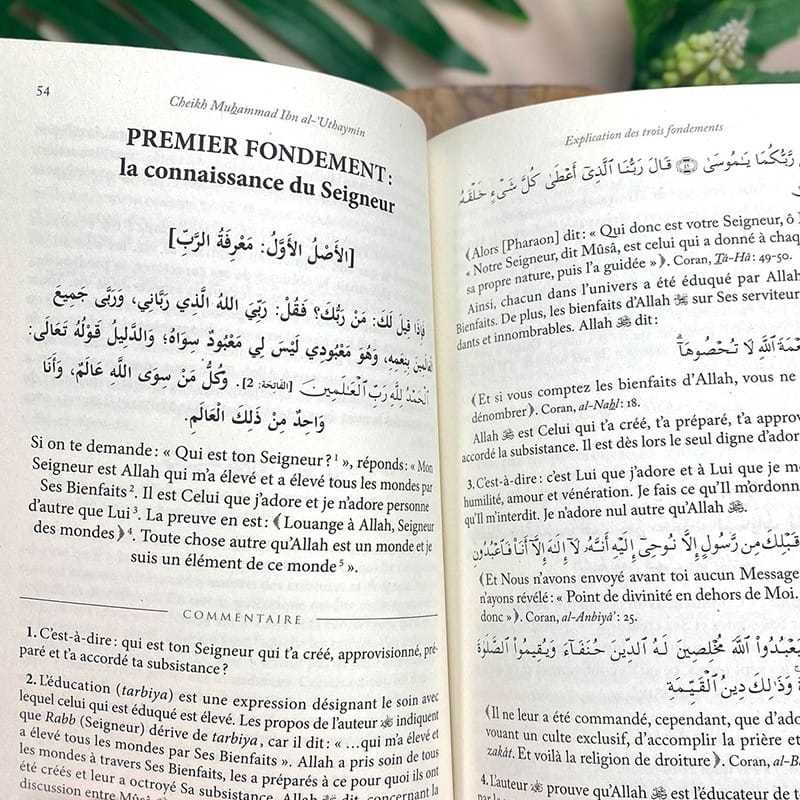 54
Cheikh Muhammad Ibn al-‘Uthaymin
PREMIER FONDEMENT :
la connaissance du Seigneur
[الأَصْلُ الأَوَّلُ: مَعْرِفَةُ الرَّبِّ]
فَإِذَا قِيلَ لَكَ: مَنْ رَبُّكَ؟ فَقُلْ: رَبِّيَ اللهُ الَّذِي رَبَّانِي، وَرَبَّى جَمِيعَ
العَالَمِينَ بِنِعَمِهِ، وَهُوَ مَعْبُودِي لَيْسَ لِي مَعْبُودٌ سِوَاهُ؛ وَالدَّلِيلُ قَوْلُهُ تَعَالَى:
الْحَمْدُ لِلَّهِ رَبِّ الْعَالَمِينَ [الفَاتِحَة: 2]. وَكُلُّ مَنْ سِوَى اللَّهِ عَالَمٌ، وَأَنَا
وَاحِدٌ مِنْ ذَلِكَ الْعَالَمِ.
Si on te demande : « Qui est ton Seigneur ?¹ », réponds : « Mon
Seigneur est Allah qui m’a élevé et a élevé tous les mondes par
Ses Bienfaits². Il est Celui que j’adore et je n’adore personne
d’autre que Lui³. La preuve en est : ﴾Louange à Allah, Seigneur
des mondes﴿⁴. Toute chose autre qu’Allah est un monde et je
suis un élément de ce monde⁵ ».
COMMENTAIRE
1. C’est-à-dire : qui est ton Seigneur qui t’a créé, approvisionné, pré-
paré et t’a accordé ta subsistance ?
2. L’éducation (tarbiya) est une expression désignant le soin avec
lequel celui qui est éduqué est élevé. Les propos de l’auteur indiquent
que Rabb (Seigneur) dérive de tarbiya, car il dit : « …qui m’a élevé et
a élevé tous les mondes par Ses Bienfaits ». Allah a pris soin de tous
les mondes à travers Ses Bienfaits, les a préparés à ce pour quoi ils ont
été créés et leur a octroyé Sa subsistance. Allah ﷻ dit, concernant la
discussion entre Mûsâ
Explication des trois fondements
رَّبُّكُمَا يَٰمُوسَىٰ ۝ قَالَ رَبُّنَا ٱلَّذِىٓ أَعْطَىٰ كُلَّ شَىْءٍ خَلْقَهُ
﴾Alors [Pharaon] dit : « Qui donc est votre Seigneur, ô
« Notre Seigneur, dit Mûsâ, est celui qui a donné à
sa propre nature, puis l’a guidée »﴿. Coran, Tâ-Hâ : 49-50.
Ainsi, chacun dans l’univers a été éduqué par Allah
Bienfaits. De plus, les bienfaits d’Allah ﷻ sur Ses
dants et innombrables. Allah ﷻ dit :
ٱللَّهِ لَا تُحْصُوهَآ
﴾Et si vous comptez les bienfaits d’Allah, vous ne
dénombrer﴿. Coran, al-Nahl : 18.
Allah ﷻ est Celui qui t’a créé, t’a préparé, t’a
accordé la subsistance. Il est dès lors le seul digne
3. C’est-à-dire : c’est Lui que j’adore et à Lui que je
humilité, amour et vénération. Je fais ce qu’Il
qu’Il m’interdit. Je n’adore nul autre qu’Allah ﷻ.
قَبْلِكَ مِن رَّسُولٍ إِلَّا نُوحِىٓ إِلَيْهِ أَنَّهُۥ لَآ إِلَٰهَ إِلَّآ أَنَا۠ فَٱعْبُدُونِ
﴾Et Nous n’avons envoyé avant toi aucun
n’ayons révélé : « Point de divinité en dehors de Moi.
donc »﴿. Coran, al-Anbiyâ’ : 25.
لِيَعْبُدُوا۟ ٱللَّهَ مُخْلِصِينَ لَهُ ٱلدِّينَ حُنَفَآءَ وَيُقِيمُوا۟ ٱلصَّلَوٰةَ
وَذَٰلِكَ دِينُ ٱلْقَيِّمَةِ
﴾Il ne leur a été commandé, cependant, que
vouant un culte exclusif, d’accomplir la prière et
zakât. Et voilà la religion de droiture﴿. Coran,
4. L’auteur prouve qu’Allah ﷻ est l’éducateur de